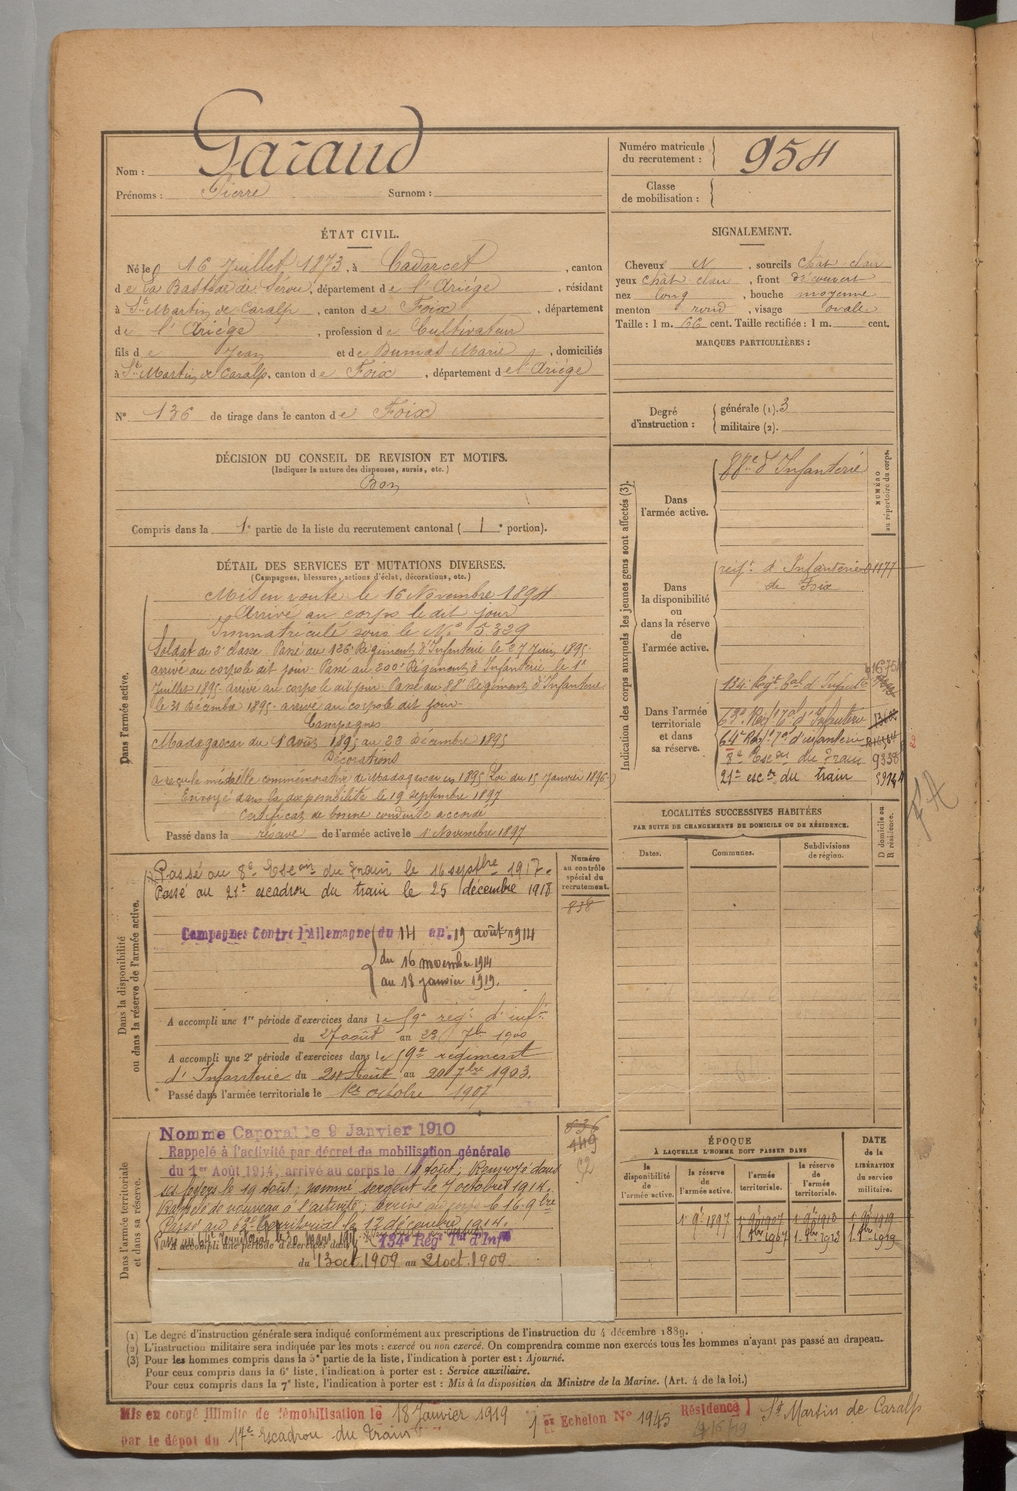 Nom : Garaud
Prénoms : Pierre Surnom :
Numéro matricule du recrutement : 954
Classe de mobilisation :
ÉTAT CIVIL.
Né le 16 Juillet 1873, à Cadarcet, canton
de La Bastide de Sérou, département de l'Ariège, résidant
à St Martin de Caralp, canton de Foix, département
de l'Ariège, profession de Cultivateur
fils de Jean et de Dumas Marie, domiciliés
à St Martin de Caralp, canton de Foix, département de l'Ariège
N° 136 de tirage dans le canton de Foix
SIGNALEMENT.
Cheveux N, sourcils chât clair
yeux chât clair, front découvert
nez long, bouche moyenne
menton rond, visage ovale
Taille : 1 m. 66 cent. Taille rectifiée : 1 m. cent.
MARQUES PARTICULIÈRES :
Degré d'instruction : générale (1). 3
militaire (2).
DÉCISION DU CONSEIL DE REVISION ET MOTIFS.
(Indiquer la nature des dispenses, sursis, etc.)
Bon
Compris dans la 1e partie de la liste du recrutement cantonal ( 1e portion).
DÉTAIL DES SERVICES ET MUTATIONS DIVERSES.
(Campagnes, blessures, actions d'éclat, décorations, etc.)
Dans l'armée active.
Mis en route le 16 Novembre 1894
Arrivé au corps le dit jour
Immatriculé sous le N° 5329
Soldat de 2e classe. Passé au 126e Régiment d'Infanterie le 27 Juin 1895.
arrivé au corps le dit jour. Passé au 200e Régiment d'Infanterie le 1er
Juillet 1895. arrivé au corps le dit jour. Passé au 88e Régiment d'Infanterie
le 31 Décembre 1895. arrivé au corps le dit jour.
Campagnes
Madagascar du 1 août 1895 au 23 Décembre 1895
Décorations
a reçu la médaille commémorative de Madagascar en 1895 Loi du 15 Janvier 1896
Envoyé dans la disponibilité le 19 septembre 1897
Certificat de bonne conduite accordé
Passé dans la réserve de l'armée active le 1 Novembre 1897
Dans la disponibilité ou dans la réserve de l'armée active.
Passé au 8e Escon du Train le 16 septbre 1917.
Passé au 21e escadron du train le 25 décembre 1918
Campagnes Contre l'Allemagne du 14 au 19 août 1914
du 16 novembre 1914
au 18 janvier 1919.
A accompli une 1re période d'exercices dans le 59e rég. d'inf.
du 27 août au 23 7bre 1900
A accompli une 2e période d'exercices dans le 59e régiment
d'Infanterie du 24 Août au 20 7bre 1903.
Passé dans l'armée territoriale le 1er octobre 1907
Numéro au contrôle spécial du recrutement.
838
Dans l'armée territoriale et dans sa réserve.
Nommé Caporal le 9 Janvier 1910
Rappelé à l'activité par décret de mobilisation générale
du 1er Août 1914, arrivé au corps le 14 août, Renvoyé dans
ses foyers le 19 août ; nommé sergent le 7 octobre 1914.
Rappelé de nouveau à l'activité ; arrivé au corps le 16. 9bre
Passé au 63e territorial le 13 décembre 1914.
A accompli une période d'exercices dans le 134e Rég. Tal d'Infie
du 13 oct. 1909 au 21 oct. 1909.
Indication des corps auxquels les jeunes gens sont affectés (3).
NUMÉRO au répertoire du corps.
Dans l'armée active.
88e d'Infanterie
Dans la disponibilité ou dans la réserve de l'armée active.
régt. d'Infanterie 01177
de Foix
Dans l'armée territoriale et dans sa réserve.
134e Régt Tal d'Infie
63e Régt Tal d'Infanterie
64e Régt Tal d'infanterie
8e Escon du Train 9338
21e escon du train
LOCALITÉS SUCCESSIVES HABITÉES
PAR SUITE DE CHANGEMENTS DE DOMICILE OU DE RÉSIDENCE.
Dates. Communes. Subdivisions de région. D domicile ou R résidence.
ÉPOQUE
À LAQUELLE L'HOMME DOIT PASSER DANS
la disponibilité de l'armée active. la réserve de l'armée active. l'armée territoriale. la réserve de l'armée territoriale. DATE de la LIBÉRATION du service militaire.
1 9e 1897 1 9e 1907 1 9e 1913 1 9e 1919
1. 8bre 1907 1. 8bre 1913 1. 8bre 1919
(1) Le degré d'instruction générale sera indiqué conformément aux prescriptions de l'instruction du 4 décembre 1889.
(2) L'instruction militaire sera indiquée par les mots : exercé ou non exercé. On comprendra comme non exercés tous les hommes n'ayant pas passé au drapeau.
(3) Pour les hommes compris dans la 5e partie de la liste, l'indication à porter est : Ajourné.
Pour ceux compris dans la 6e liste, l'indication à porter est : Service auxiliaire.
Pour ceux compris dans la 7e liste, l'indication à porter est : Mis à la disposition du Ministre de la Marine. (Art. 4 de la loi.)
Mis en congé illimité de démobilisation le 18 Janvier 1919 1er Echelon N° 1945 Résidence St Martin de Caralp
par le dépôt du 17e Escadron du Train